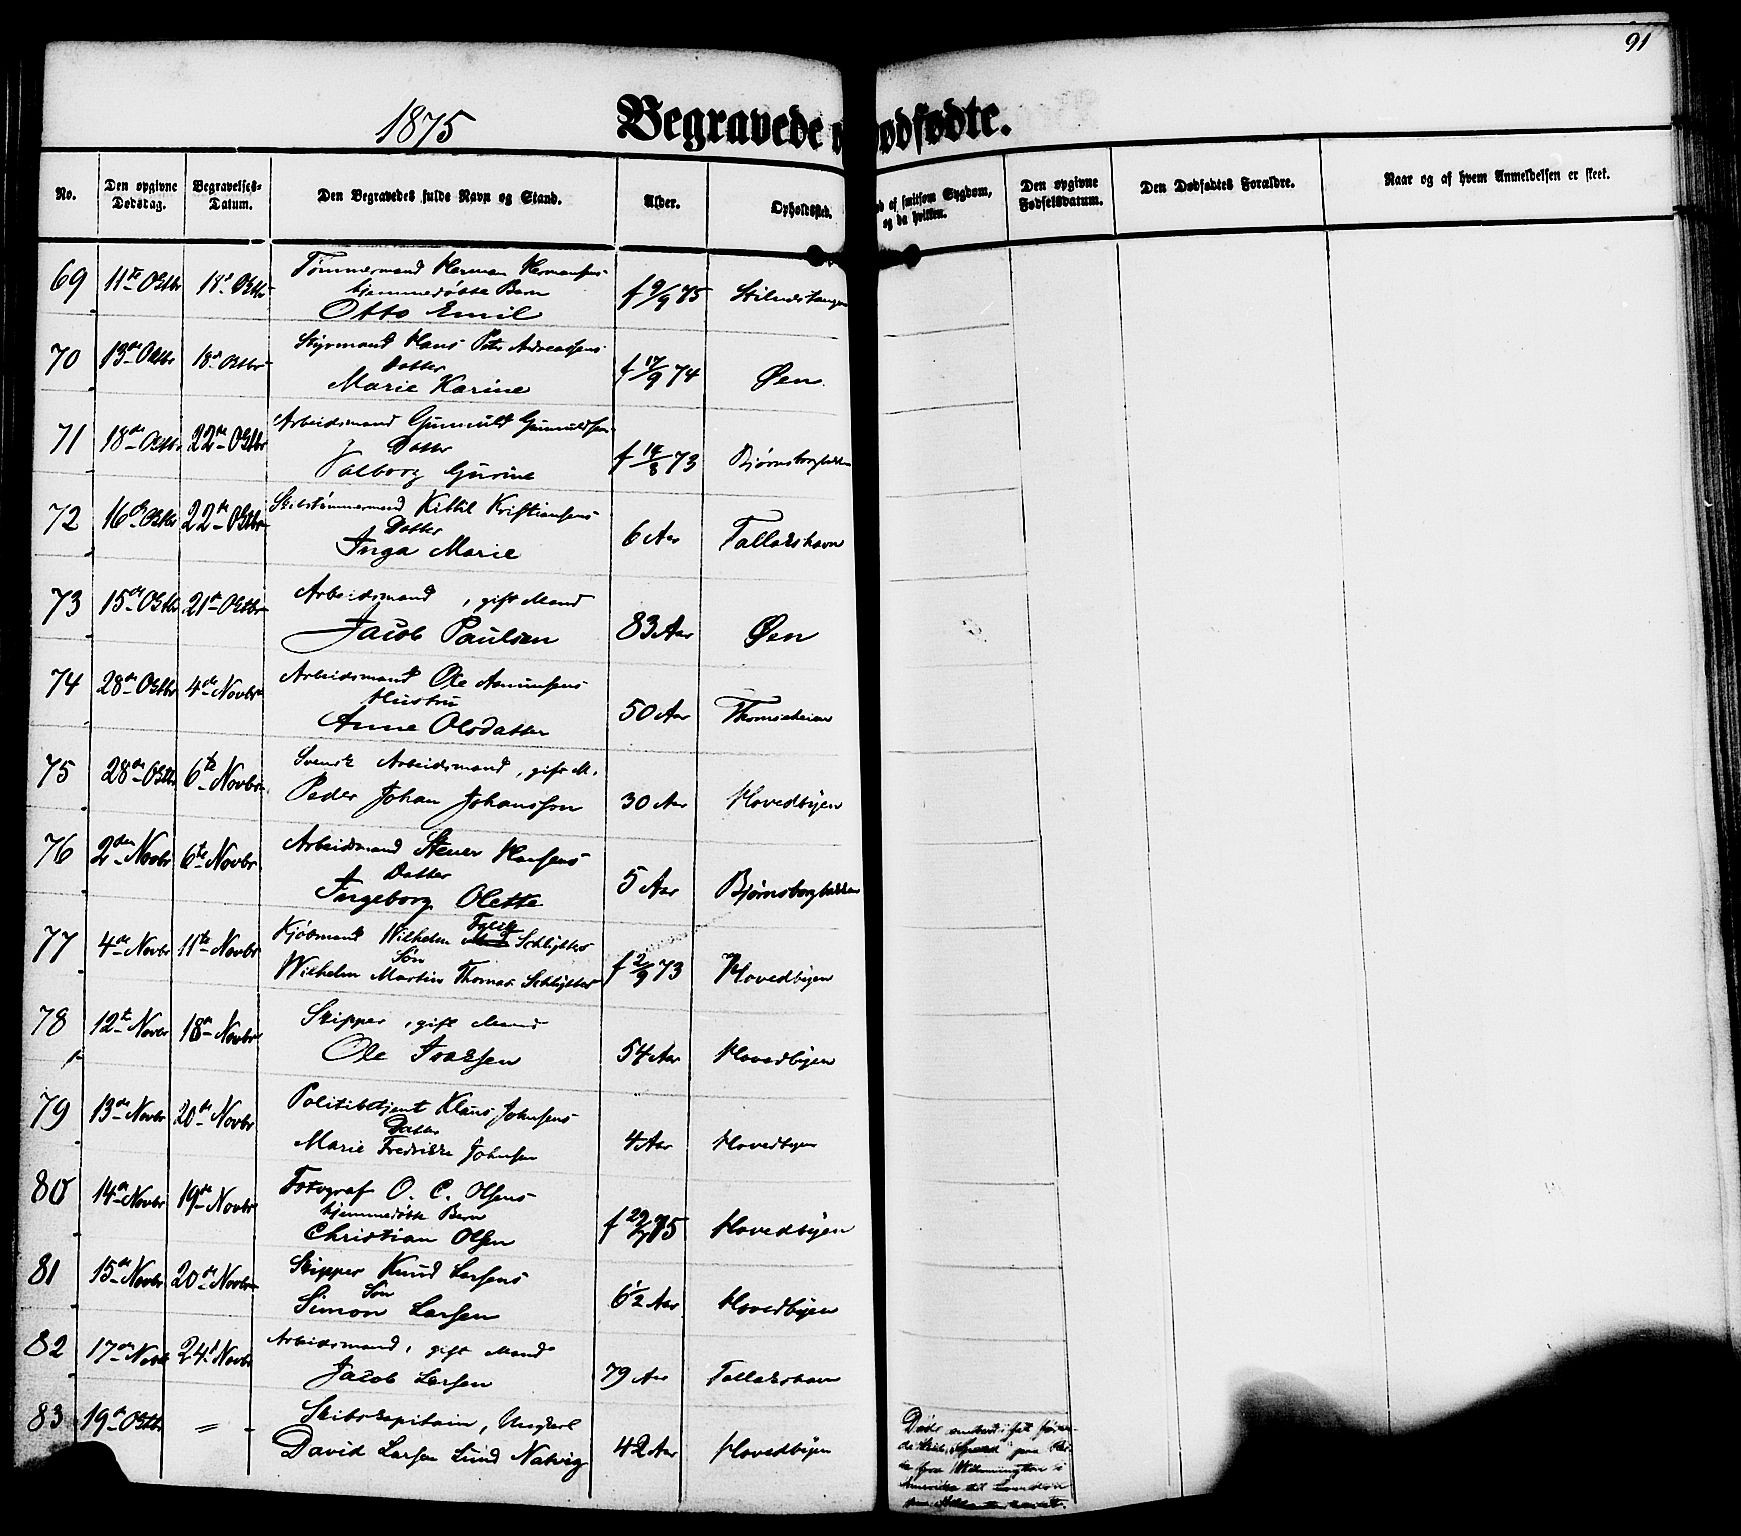 91
1875
Begravede o Dødfødte.
No.
Den opgivne Dødsdag.
Begravelses-Datum.
Den Begravedes fulde Navn og Stand.
Alder.
Opholdssted.
af smitsom Sygdom, og da hvilken.
Den opgivne Fødselsdatum.
Den Dødfødtes Forældre.
Naar og af hvem Anmeldelsen er skeet.
69 11te Octbr 18d Octbr Tømmermand Herman Hermansens
hjemmedøbte Barn
Otto Emil f 9/9 75
70 13de Octbr 18d Octbr Styrmand Hans Petr Andreassens
Datter
Marie Karine f 17/9 74 Øen
71 18de Octbr 22de Octbr Arbeidsmand Gunnuld Gunnuldsens
Datter
Valborg Gurine f 14/8 73 Bjørnsborgbakken
72 16de Octbr 22de Octbr Skibstømmermand Kittil Kristiansens
Datter
Inga Marie 6 Aar Tallakshavn
73 15de Octbr 21de Octbr Arbeidsmand, gift Mand
Jacob Paulsen 83 Aar Øen
74 28de Octbr 4de Novbr Arbeidsmand Ole Asmunsens
Hustru
Anne Olsdatter 50 Aar Thomseheien
75 28de Octbr 6te Novbr Svensk Arbeidsmand, gift M.
Peder Johan Johansson 30 Aar Hovedbyen
76 2den Novbr 6te Novbr Arbeidsmand Stener Hansens
Datter
Ingeborg Olette 5 Aar Bjørnsborgbakken
77 4de Novbr 11te Novbr Kjøbmand Wilhelm Schlytters
Søn
Wilhelm Martin Thomas Schlytter f 2/9 73 Hovedbyen
78 12te Novbr 18de Novbr Skipper, gift Mand
Ole Isaksen 54 Aar Hovedbyen
79 13de Novbr 20de Novbr Politibetjent Klaus Johnsens
Datter
Marie Fredrikke Johnsen 4 Aar Hovedbyen
80 14de Novbr 19de Novbr Fotograf O. C. Olsens
hjemmedøbte Barn
Christian Olsen f 29/7 75 Hovedbyen
81 15de Novbr 20de Novbr Skipper Knud Larsens
Søn
Simon Larsen 6½ Aar Hovedbyen
82 17de Novbr 24d Novbr Arbeidsmand, gift Mand
Jacob Larsen 79 Aar Tallakshavn
83 19de Octbr = Skibskapitain, Ungkarl
David Larsen Lund Natvig 42 Aar Hovedbyen
Døde ombord i det føren-
de Skib, "Speed" paa Rei-
se fra Wilmington i
Amerika til London